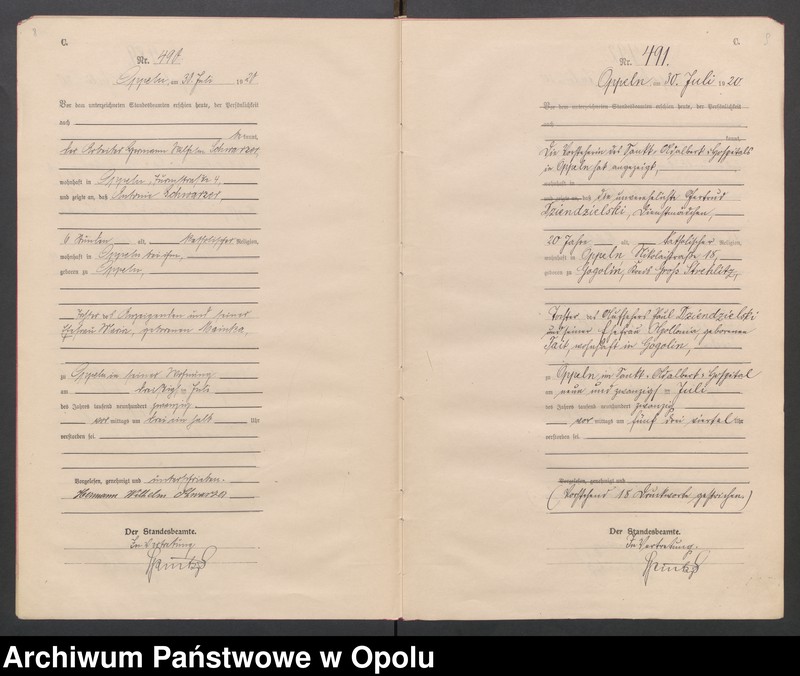 C.
Nr. 490
Oppeln, am 30. Juli 1920
Vor dem unterzeichneten Standesbeamten erschien heute, der Persönlichkeit
nach
be kannt,
der Arbeiter Hermann Wilhelm Schwarzer,
wohnhaft in Oppeln, Turmstraße 4,
und zeigte an, daß Antonie Schwarzer
6 Stunden alt, katholischer Religion,
wohnhaft in Oppeln bei ihm,
geboren zu Oppeln,
Tochter des Anzeigenden und seiner
Ehefrau Marie, geborenen
zu Oppeln in seiner Wohnung
am dreißigsten Juli
des Jahres tausend neunhundert zwanzig
vor mittags um drei ein halb Uhr
verstorben sei.
Vorgelesen, genehmigt und unterschrieben.
Hermann Wilhelm Schwarzer
Der Standesbeamte.
In Vertretung
C.
Nr. 491.
Oppeln am 30. Juli 1920
Vor dem unterzeichneten Standesbeamten erschien heute, der Persönlichkeit
nach
kannt,
Die Vorsteherin des Sankt-Adalbert-Hospitals
in Oppeln hat angezeigt,
wohnhaft in
und zeigte an, daß die unverehelichte Gertrud
Dziendzielski, Dienstmädchen,
20 Jahre alt, katholischer Religion,
wohnhaft in Oppeln Nikolaistraße 18,
geboren zu Gogolin, Kreis Groß Strehlitz,
Tochter des Paul Dziendzielski
und seiner Ehefrau Apollonia, geborenen
wohnhaft in Gogolin,
zu Oppeln, im Sankt-Adalbert-Hospital
am neun und zwanzigsten Juli
des Jahres tausend neunhundert zwanzig
vor mittags um fünf drei viertel Uhr
verstorben sei.
Vorgelesen, genehmigt und
(Vorstehend 18 Druckworte gestrichen.)
Der Standesbeamte.
In Vertretung.
Archiwum Państwowe w Opolu